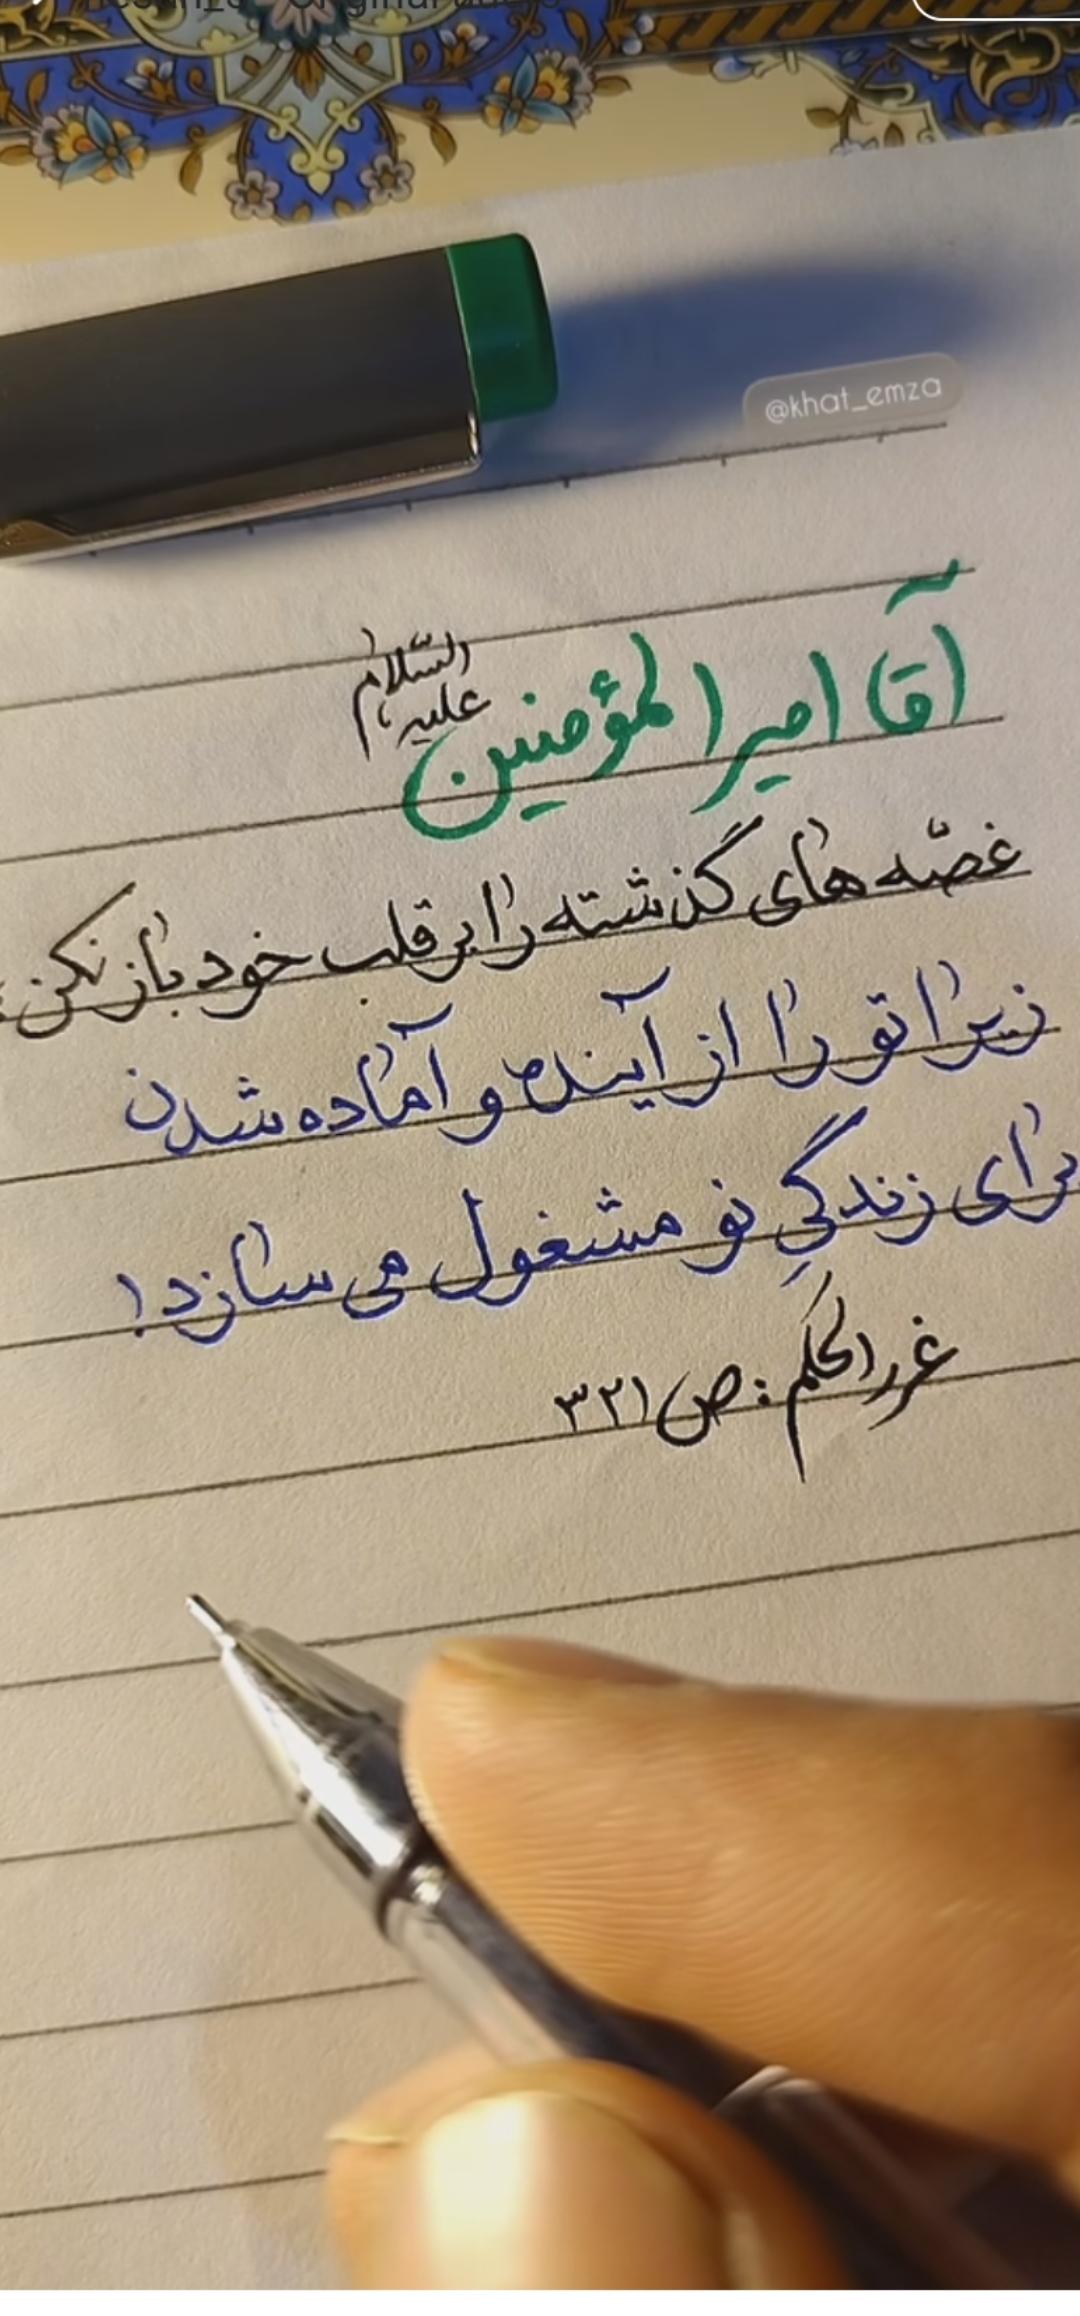 @khat_emza
آقا امیرالمؤمنین علیه السّلام
غصّه های گذشته را بر قلب خود باز نکن؛
زیرا تو را از آینده و آماده شدن
برای زندگیِ نو مشغول می سازد!
غررالحکم: ص ۳۲۱